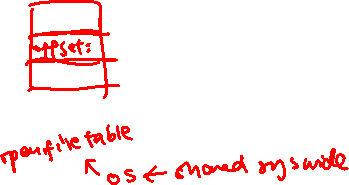 offset:
open file table
OS ← shared sys wide